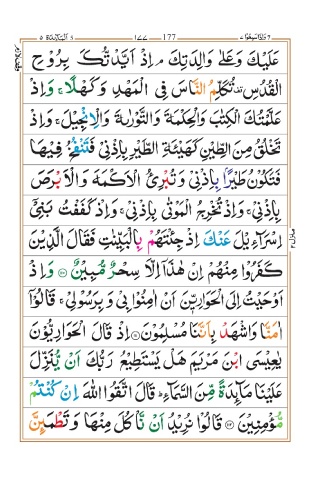 واذا سمعوا ٧ ١٧٧ 177 المآئدة ٥
عَلَيْكَ وَعَلٰى وَالِدَتِكَ ۘ اِذْ اَيَّدْتُّكَ بِرُوْحِ
الْقُدُسِ تُكَلِّمُ النَّاسَ فِى الْمَهْدِ وَكَهْلًا ۚ وَاِذْ
عَلَّمْتُكَ الْكِتٰبَ وَالْحِكْمَةَ وَالتَّوْرٰىةَ وَالْاِنْجِيْلَ ۚ وَاِذْ
تَخْلُقُ مِنَ الطِّيْنِ كَهَيْئَةِ الطَّيْرِ بِاِذْنِىْ فَتَنْفُخُ فِيْهَا
فَتَكُوْنُ طَيْرًۢا بِاِذْنِىْ وَتُبْرِئُ الْاَكْمَهَ وَالْاَبْرَصَ
بِاِذْنِىْ ۚ وَاِذْ تُخْرِجُ الْمَوْتٰى بِاِذْنِىْ ۚ وَاِذْ كَفَفْتُ بَنِىْۤ
اِسْرَآءِيْلَ عَنْكَ اِذْ جِئْتَهُمْ بِالْبَيِّنٰتِ فَقَالَ الَّذِيْنَ
كَفَرُوْا مِنْهُمْ اِنْ هٰذَاۤ اِلَّا سِحْرٌ مُّبِيْنٌ ۝ وَاِذْ
اَوْحَيْتُ اِلَى الْحَوَارِيّٖنَ اَنْ اٰمِنُوْا بِىْ وَبِرَسُوْلِىْ ۚ قَالُوْۤا
اٰمَنَّا وَاشْهَدْ بِاَنَّنَا مُسْلِمُوْنَ ۝ اِذْ قَالَ الْحَوَارِيُّوْنَ
يٰعِيْسَى ابْنَ مَرْيَمَ هَلْ يَسْتَطِيْعُ رَبُّكَ اَنْ يُّنَزِّلَ
عَلَيْنَا مَآئِدَةً مِّنَ السَّمَآءِ ؕ قَالَ اتَّقُوا اللّٰهَ اِنْ كُنْتُمْ
مُّؤْمِنِيْنَ ۝ قَالُوْا نُرِيْدُ اَنْ نَّاْكُلَ مِنْهَا وَتَطْمَئِنَّ